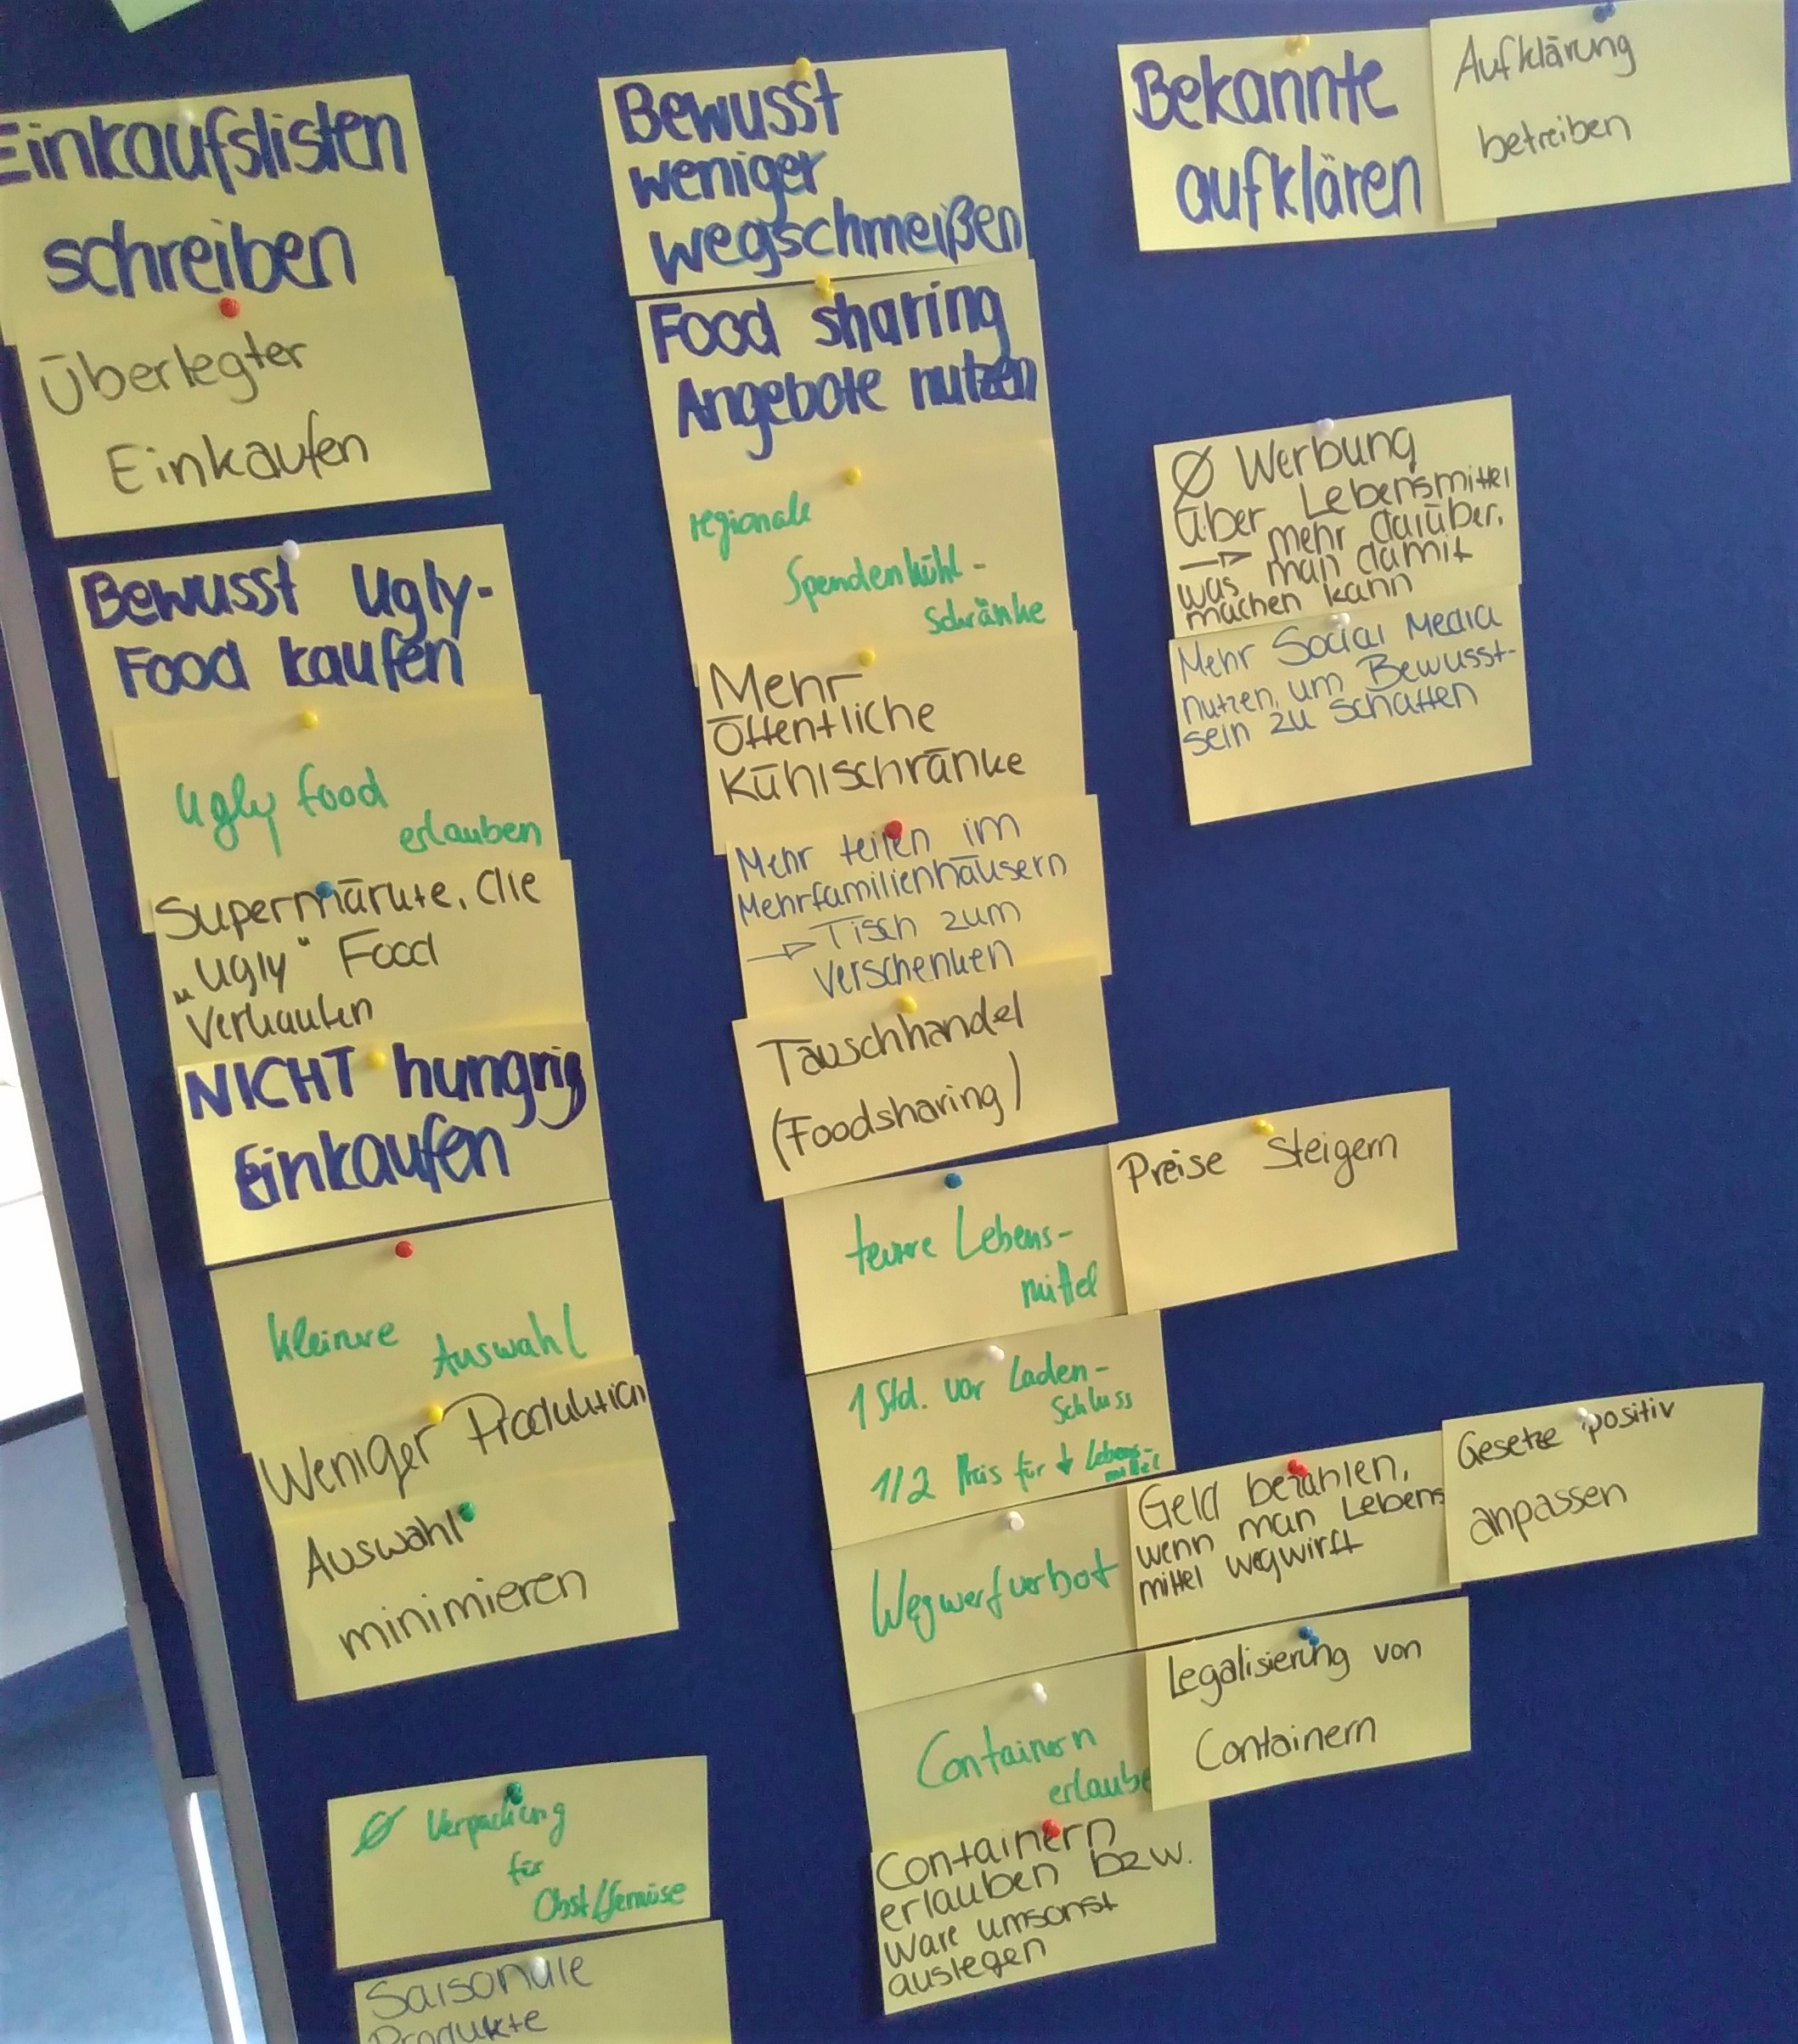 Einkaufslisten
schreiben
Überlegter
Einkaufen
Bewusst Ugly-
Food kaufen
Ugly food
erlauben
Supermärkte, die
„ugly“ Food
verkaufen
NICHT hungrig
Einkaufen
kleinere
Auswahl
Weniger Produktion
Auswahl
minimieren
Ø Verpackung
für
Obst/Gemüse
Saisonale
Produkte
Bewusst
weniger
wegschmeißen
Food sharing
Angebote nutzen
regionale
Spendenkühl-
schränke
Mehr
öffentliche
Kühlschränke
Mehr teilen im
Mehrfamilienhäusern
→ Tisch zum
verschenken
Tauschhandel
(Foodsharing)
teure Lebens-
mittel
Preise steigern
1 Std. vor Laden-
Schluss
1/2 Preis für ↓ Lebens-
mittel
Wegwerfverbot
Geld bezahlen,
wenn man Lebens
mittel wegwirft
Gesetze positiv
anpassen
Containern
erlaube
Legalisierung von
Containern
Containern
erlauben bzw.
Ware umsonst
auslegen
Bekannte
aufklären
Aufklärung
betreiben
Ø Werbung
über Lebensmittel
→ mehr darüber,
was man damit
machen kann
Mehr Social Media
nutzen, um Bewusst-
sein zu schaffen